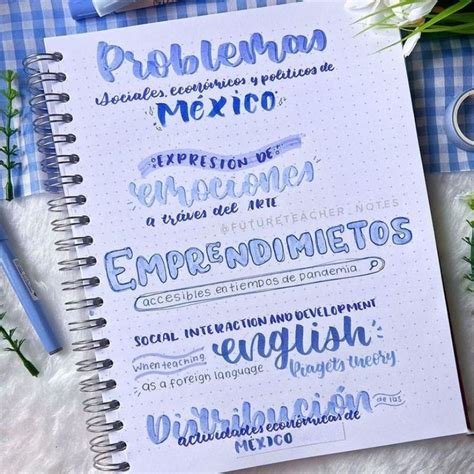 Problemas
sociales, económicos y politicos de
MÉXICO
EXPRESIÓN DE
emociones
a tráves del ARTE
@FUTURETEACHER_NOTES
EMPRENDIMIETOS
accesibles en tiempos de pandemia
SOCIAL INTERACTION AND DEVELOPMENT
When teaching english
as a foreign language Piagets theory
Distribución de las
actividades económicas de
MÉXICO